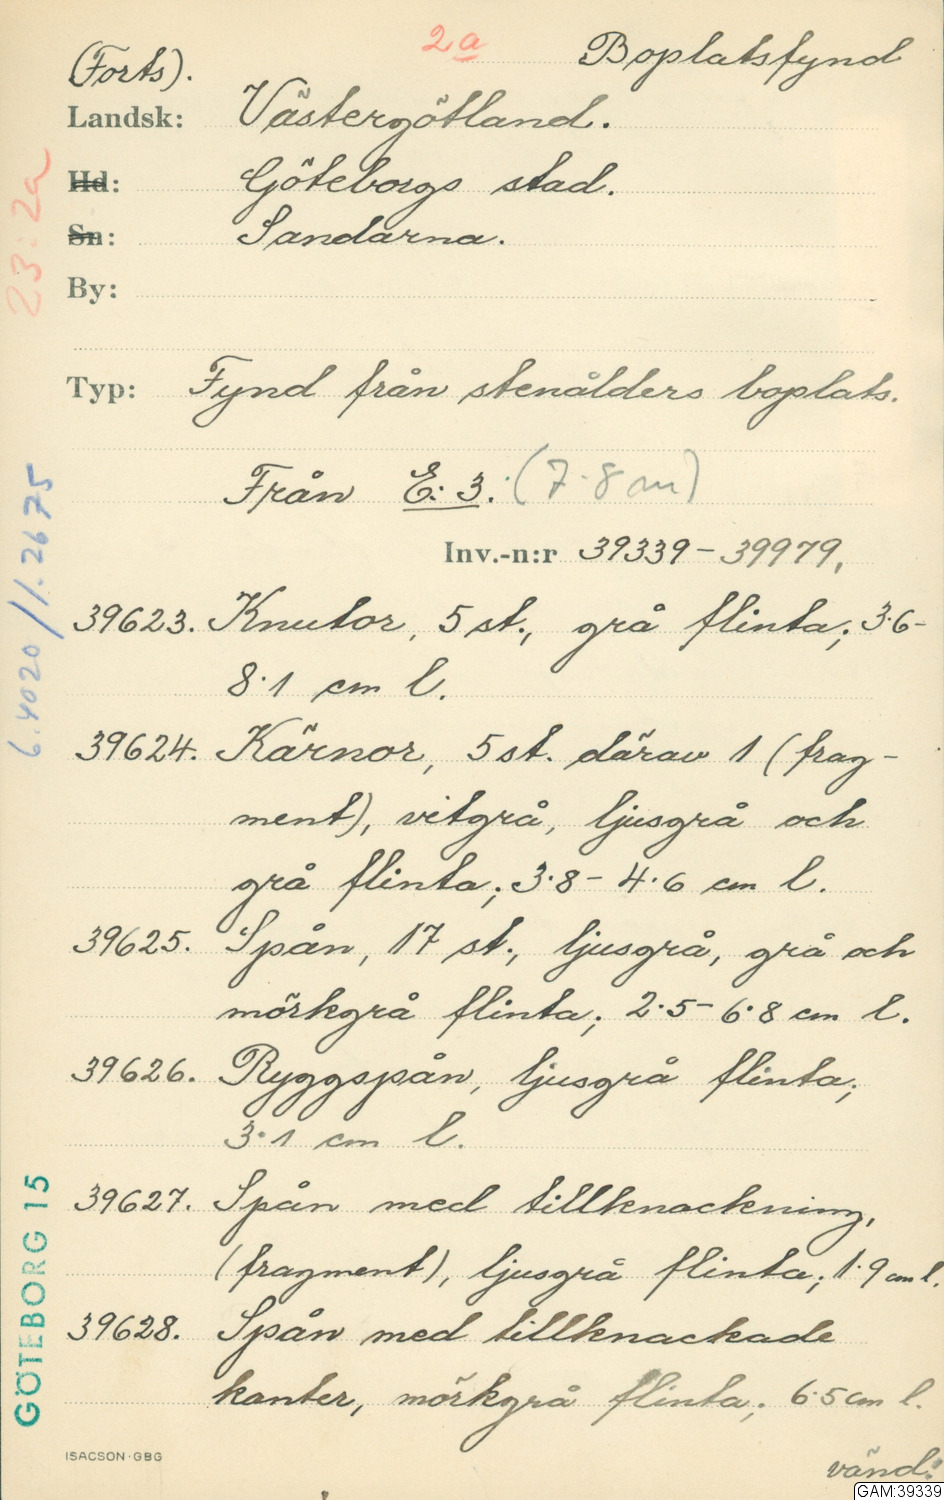 2a
Boplatsfynd
(Forts).
Landsk: Västergötland.
Hd: Göteborgs stad.
Sn: Sandarna.
By:
Typ: Fynd från stenålders boplats.
Från E: 3. (7.8 m)
Inv.-n:r 39339-39979,
39623. Knutor, 5 st., grå flinta; 3.6-
8.1 cm l.
39624. Kärnor, 5 st. därav 1 (frag-
ment), vitgrå, ljusgrå och
grå flinta; 3.8-4.6 cm l.
39625. Spån, 17 st., ljusgrå, grå och
mörkgrå flinta; 2.5-6.8 cm l.
39626. Ryggspån, ljusgrå flinta;
3.1 cm l.
39627. Spån med tillknackning,
(fragment), ljusgrå flinta; 1.9 cm l.
39628. Spån med tillknackade
kanter, mörkgrå flinta; 6.5 cm l.
vänd:
23:2a
6.4020/1.2675
GÖTEBORG 15
ISACSON·GBG
GAM:39339